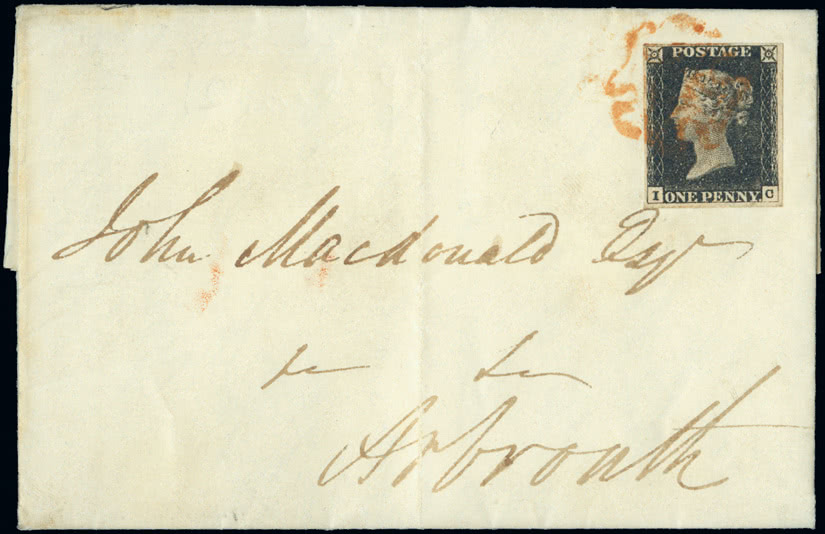 POSTAGE
I ONE PENNY. C
John Macdonald Esqr
Arbroath